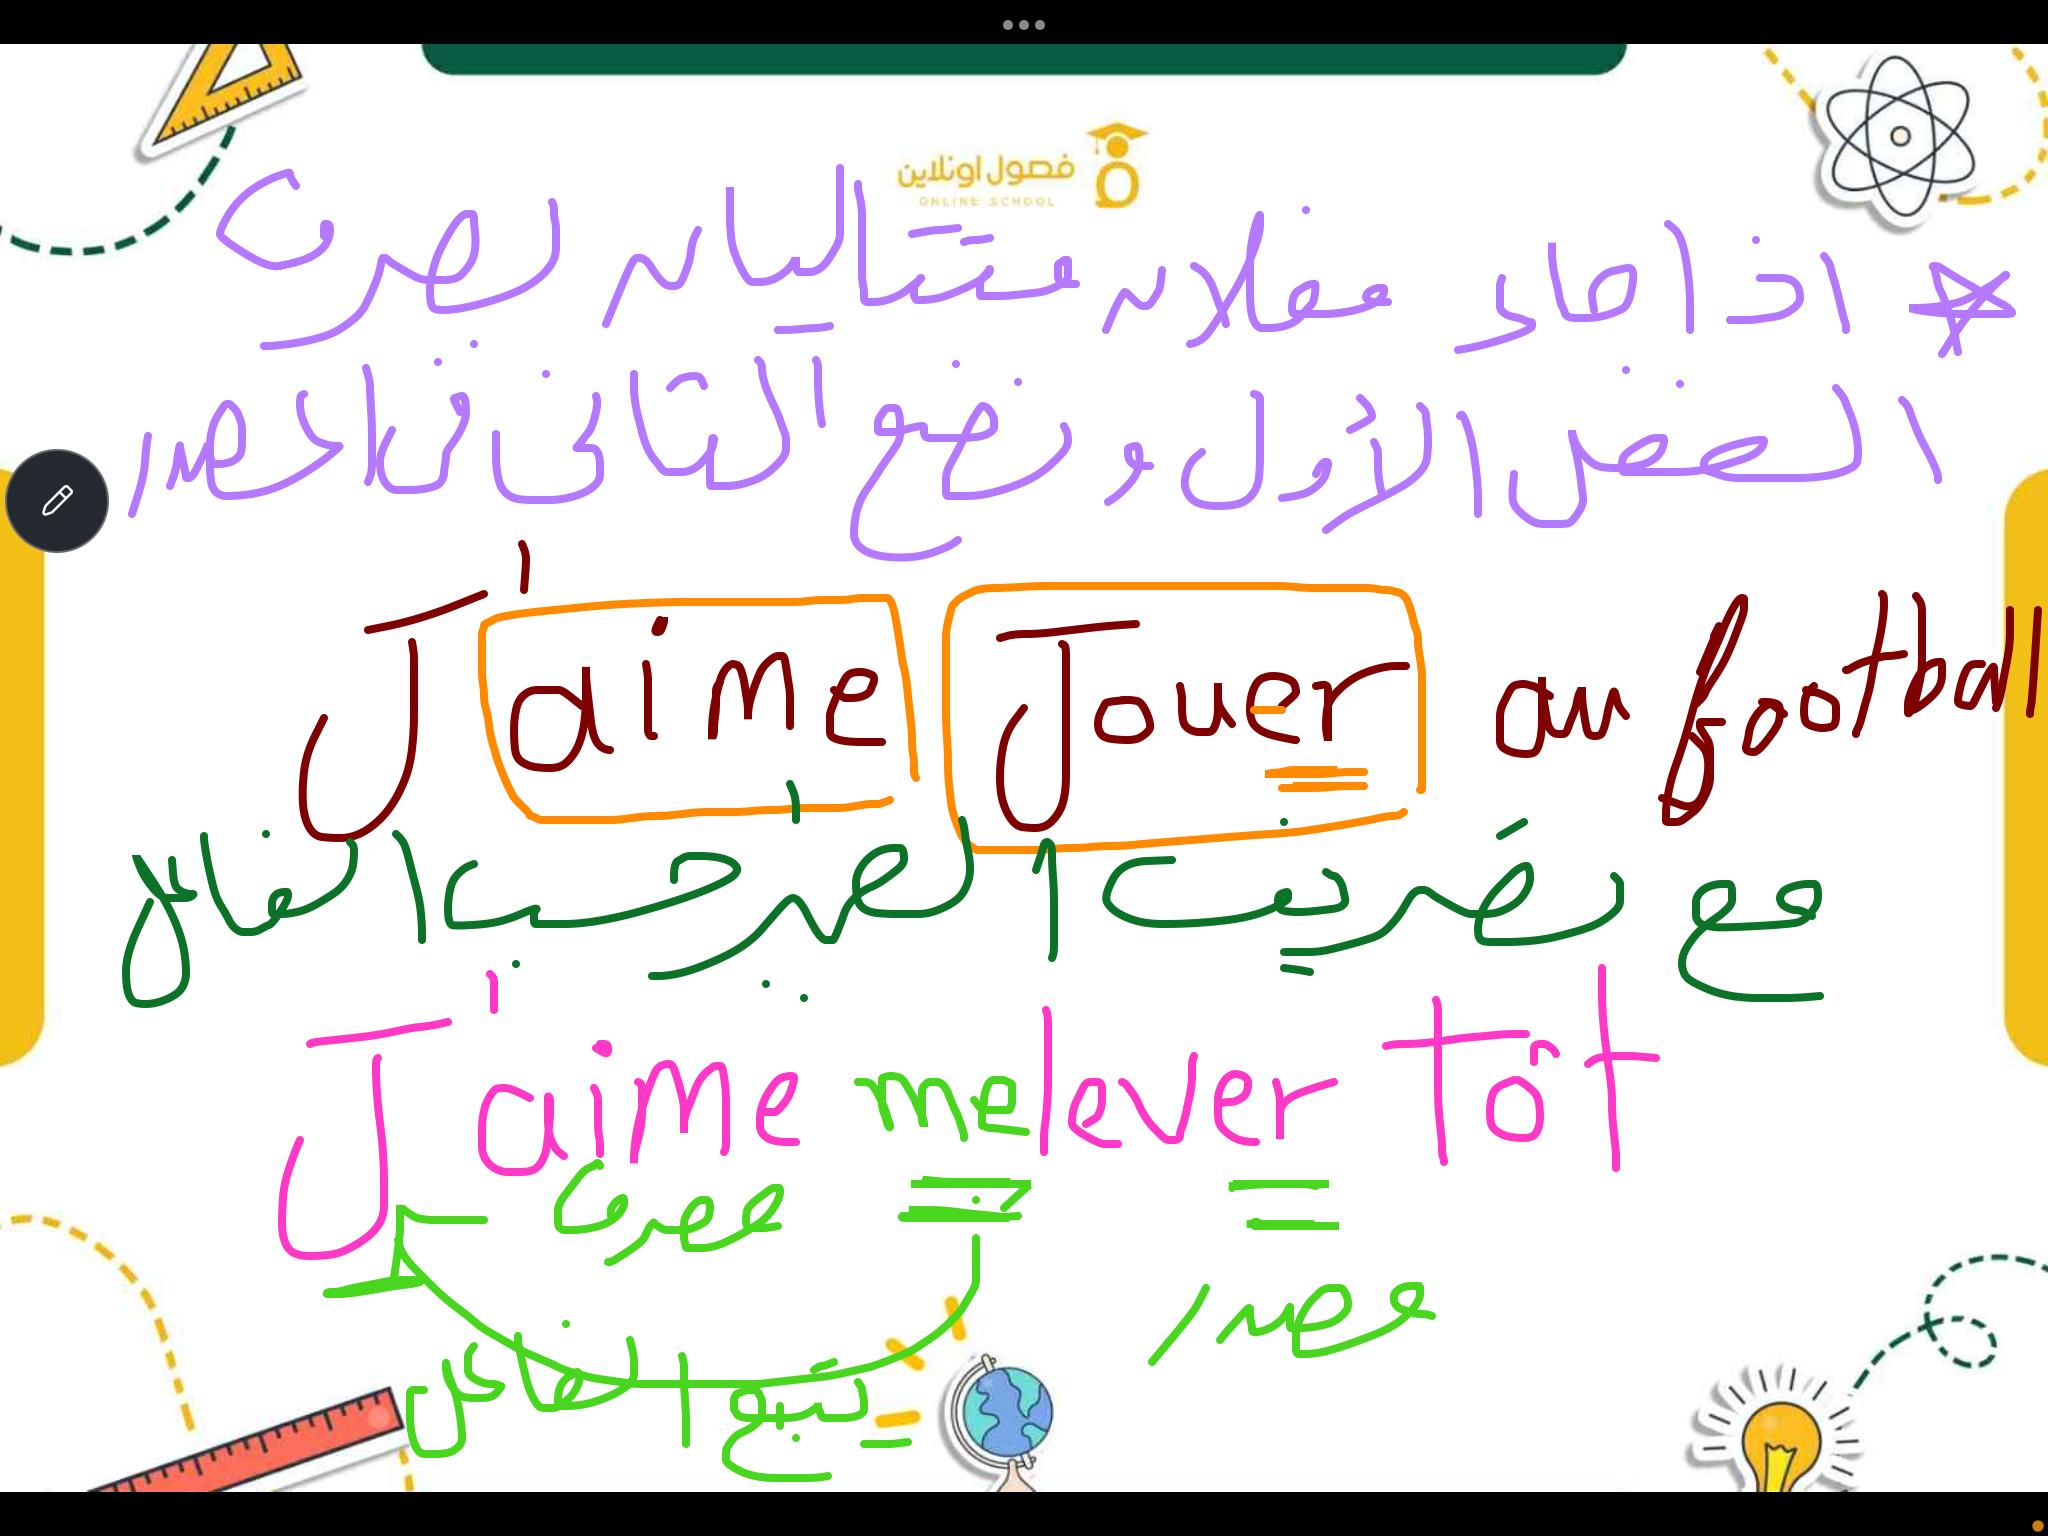 فصول اونلاين
ONLINE SCHOOL
* اذا جاء فعلان متتاليان نصرف
الفعل الأول و نضع الثاني في المصدر
J'aime Jouer au football
مع تصريف الضمير حسب الفاعل
J'aime me lever tôt
مصرف
مصدر
يتبع الفاعل